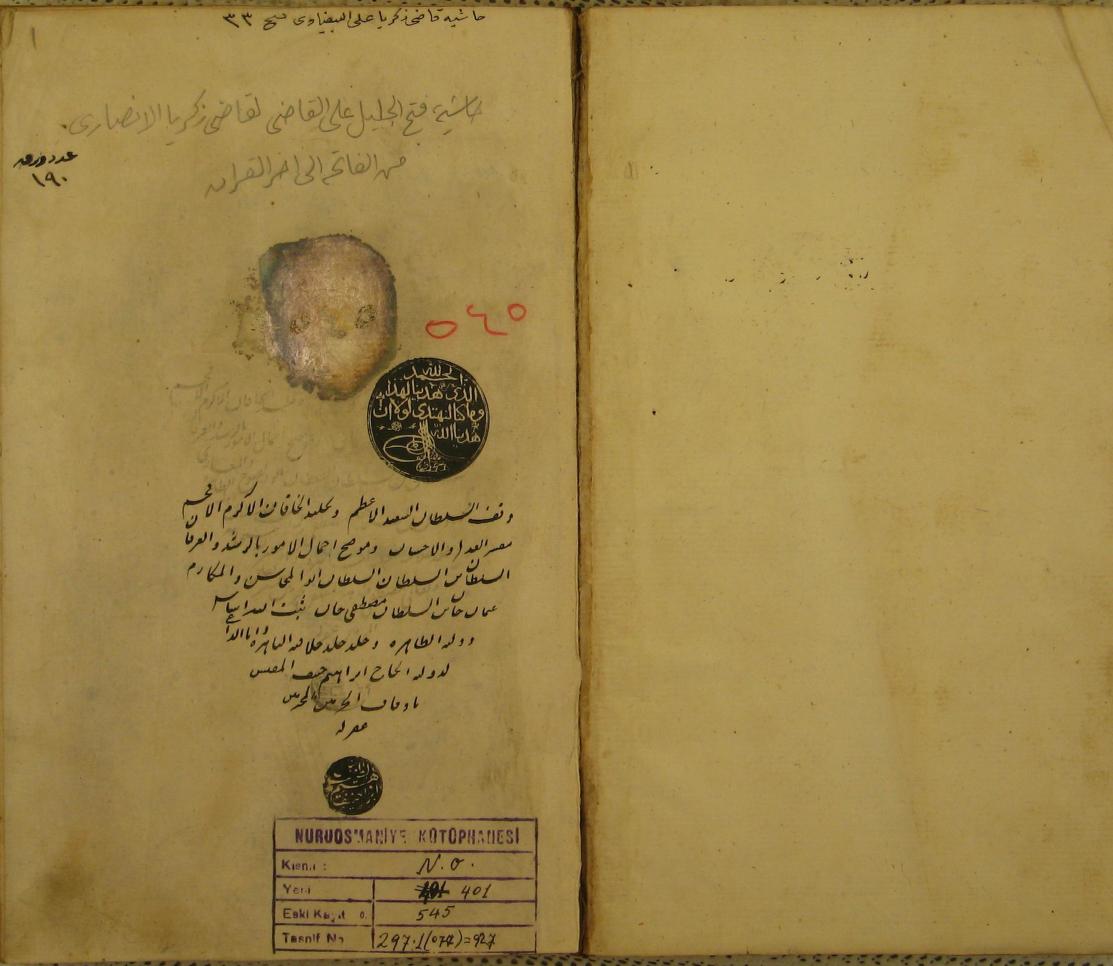 حاشيه قاضى زكريا على البيضاوى فتح ٣٣
١
حاشية فتح الجليل على القاضى لقاضى زكريا الانصارى
من الفاتحه الى اخر القران
عدد ورقه
١٩٠
٥٤٥
الحمد لله
الذى هدينا لهذا
وما كنا لنهتدى لولا ان
هدينا الله
وقف السلطان السعيد الاعظم والخاقان الاكرم الافخم
العدل والاحسان وموضح اجمال الامور بالرشد والعرفان
السلطان بن السلطان السلطان ابو المحاسن والمكارم
عثمان خان بن السلطان مصطفى خان ثبت الله اساس
دولته الطاهره وخلد خلافته الباهره وانا الداعى
لدولته الحاج ابراهيم حنيف المفتش
باوقاف الحرمين المحترمين
غفر له
NURUOSMANİYE KÜTÜPHANESİ
Kısmı : N. O.
Yeni 401
Eski Kayıt o. 545
Tasnif No 297.1(077)=927